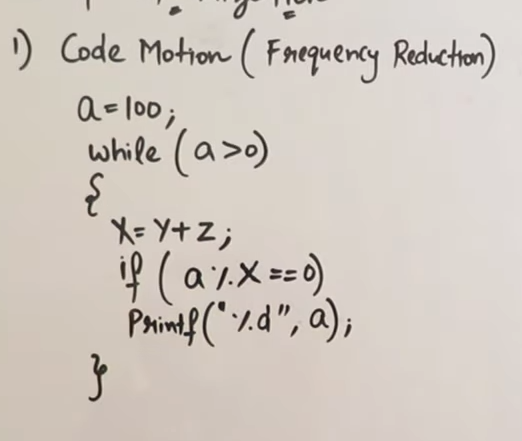 1) Code Motion (Frequency Reduction)
a=100;
while (a>0)
{
X=Y+Z;
if (a%X==0)
Printf("%d", a);
}